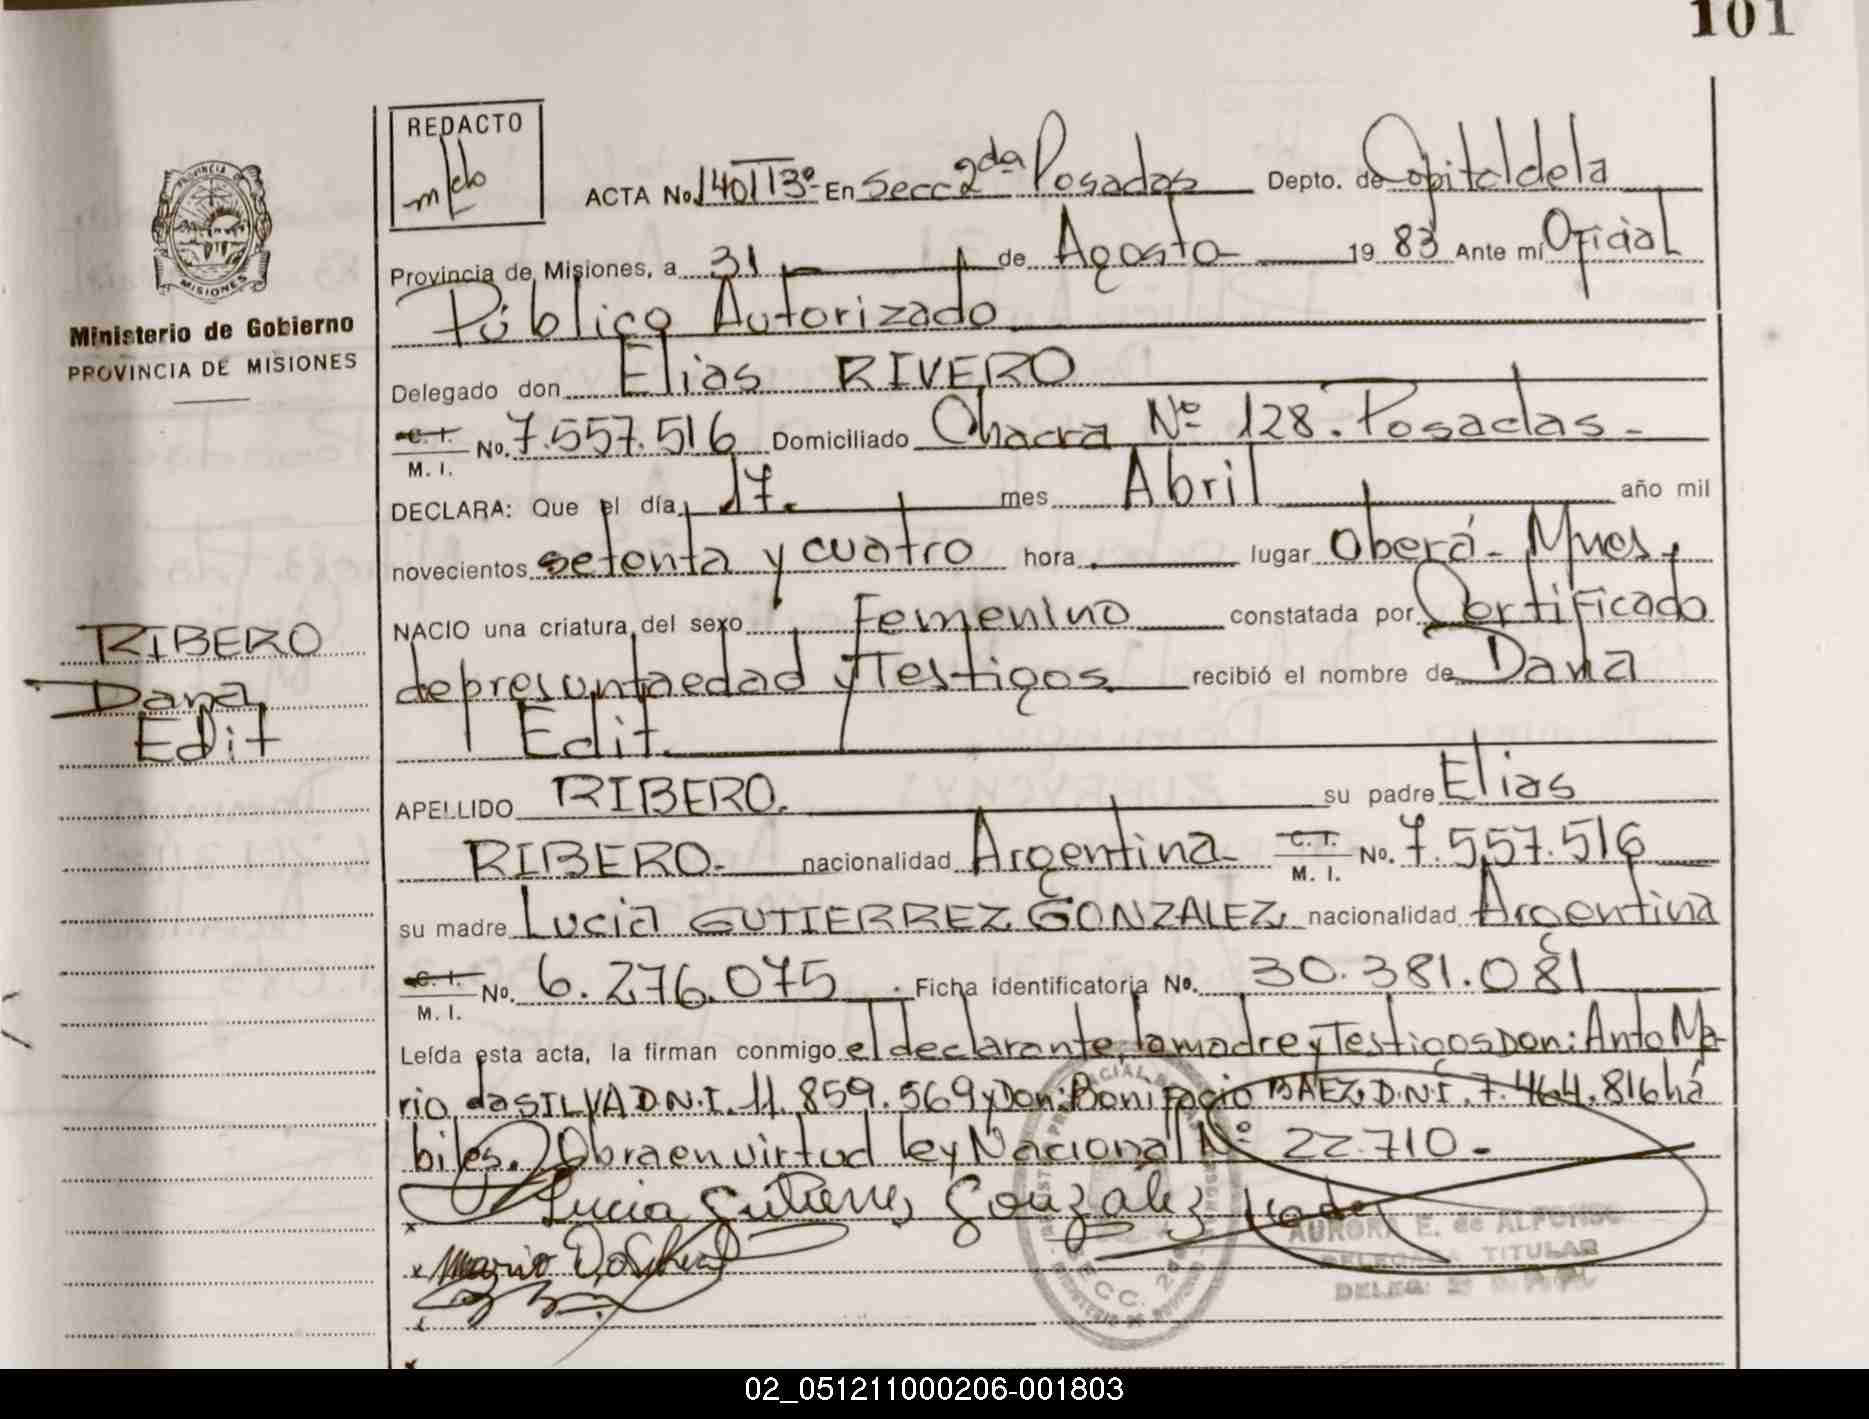 101
REDACTO
ACTA No. 140 T I 3º- En Secc 2da Posadas Depto. de Capital de la
Provincia de Misiones, a 31 de Agosto 1983 Ante mí Oficial
Público Autorizado
Ministerio de Gobierno
PROVINCIA DE MISIONES
Delegado don Elias RIVERO
C. I. M. I. No. 7.557.516 Domiciliado Chacra Nº 128. Posadas-
DECLARA: Que el día 17. mes Abril año mil
novecientos setenta y cuatro hora lugar Oberá- Mnes,
NACIO una criatura del sexo Femenino constatada por Certificado
de presunta edad y Testigos recibió el nombre de Dana
Edit.
RIBERO
Dana
Edit
APELLIDO RIBERO. su padre Elias
RIBERO- nacionalidad Argentina- C. I. M. I. No. 7.557.516
su madre Lucia GUTIERREZ GONZALEZ, nacionalidad Argentina
C. I. M. I. No. 6.276.075 Ficha identificatoria No. 30.381.081
Leída esta acta, la firman conmigo el declarante, la madre y Testigos Don: Anto Ma-
rio da SILVA D.N.I. 11.859.569 y Don: Bonifacio BAEZ, D.N.I. 7.464.816 há
biles. Obra en virtud ley Nacional Nº 22.710-
Lucia Gutierrez Gonzalez
Mario DaSilva
AURORA E. de ALFONSO
DELEGADA TITULAR
02_051211000206-001803